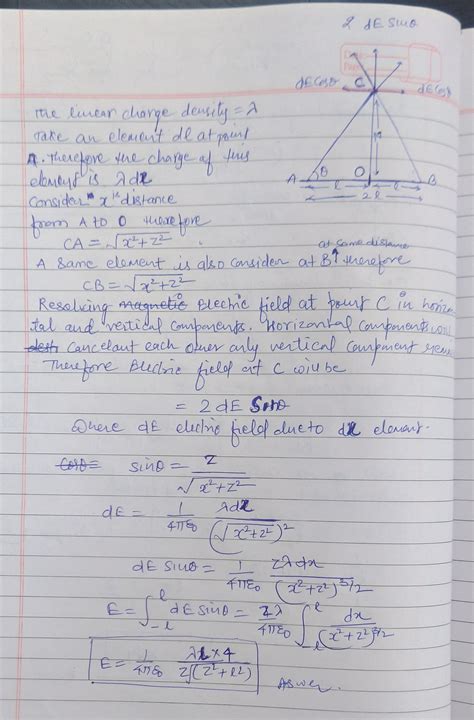 2 dE sinθ
dEcosθ C dEcosθ
z
A θ O B
l l
2l
The linear charge density = λ
Take an element dl at point
A. Therefore the charge of this
element is λdx
Consider "x" distance
from A to O therefore
CA = √x²+z²
at same distance
A same element is also consider at B↑ therefore
CB = √x²+z²
Resolving magnetic Electric field at point C in horizon
tal and vertical components. Horizontal components
cancelant each other only vertical component
Therefore Electric field at C will be
= 2 dE Sinθ
Where dE electric field due to dx element.
cosθ= sinθ = z / √x²+z²
dE = 1/4πε0 λdx / (√x²+z²)²
dE sinθ = 1/4πε0 zλdx / (x²+z²)^3/2
E = ∫_-l^l dE sinθ = zλ/4πε0 ∫_-l^l dx / (x²+z²)^3/2
E = 1/4πε0 λl×4 / z√(z²+l²) Aswer.